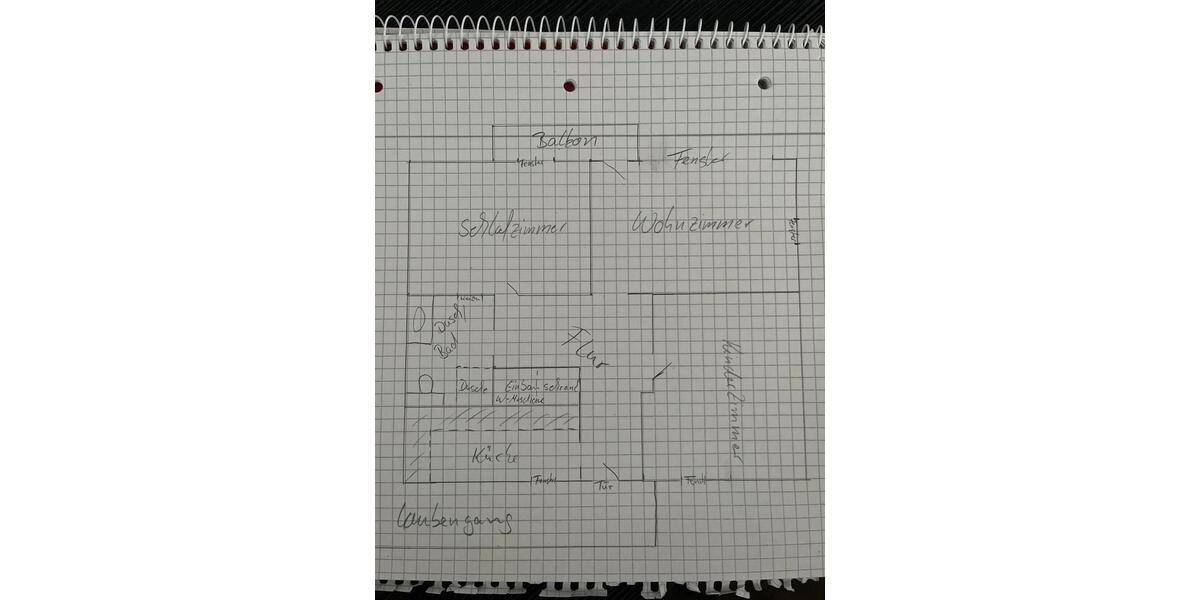 Balkon
Fenster
Fenster
Schlafzimmer
Wohnzimmer
Fenster
Dusch/
Bad
Flur
Kinderzimmer
Dusche
Einbauschrank
W-Maschine
Küche
Fenster
Tür
Fenst
Laubengang